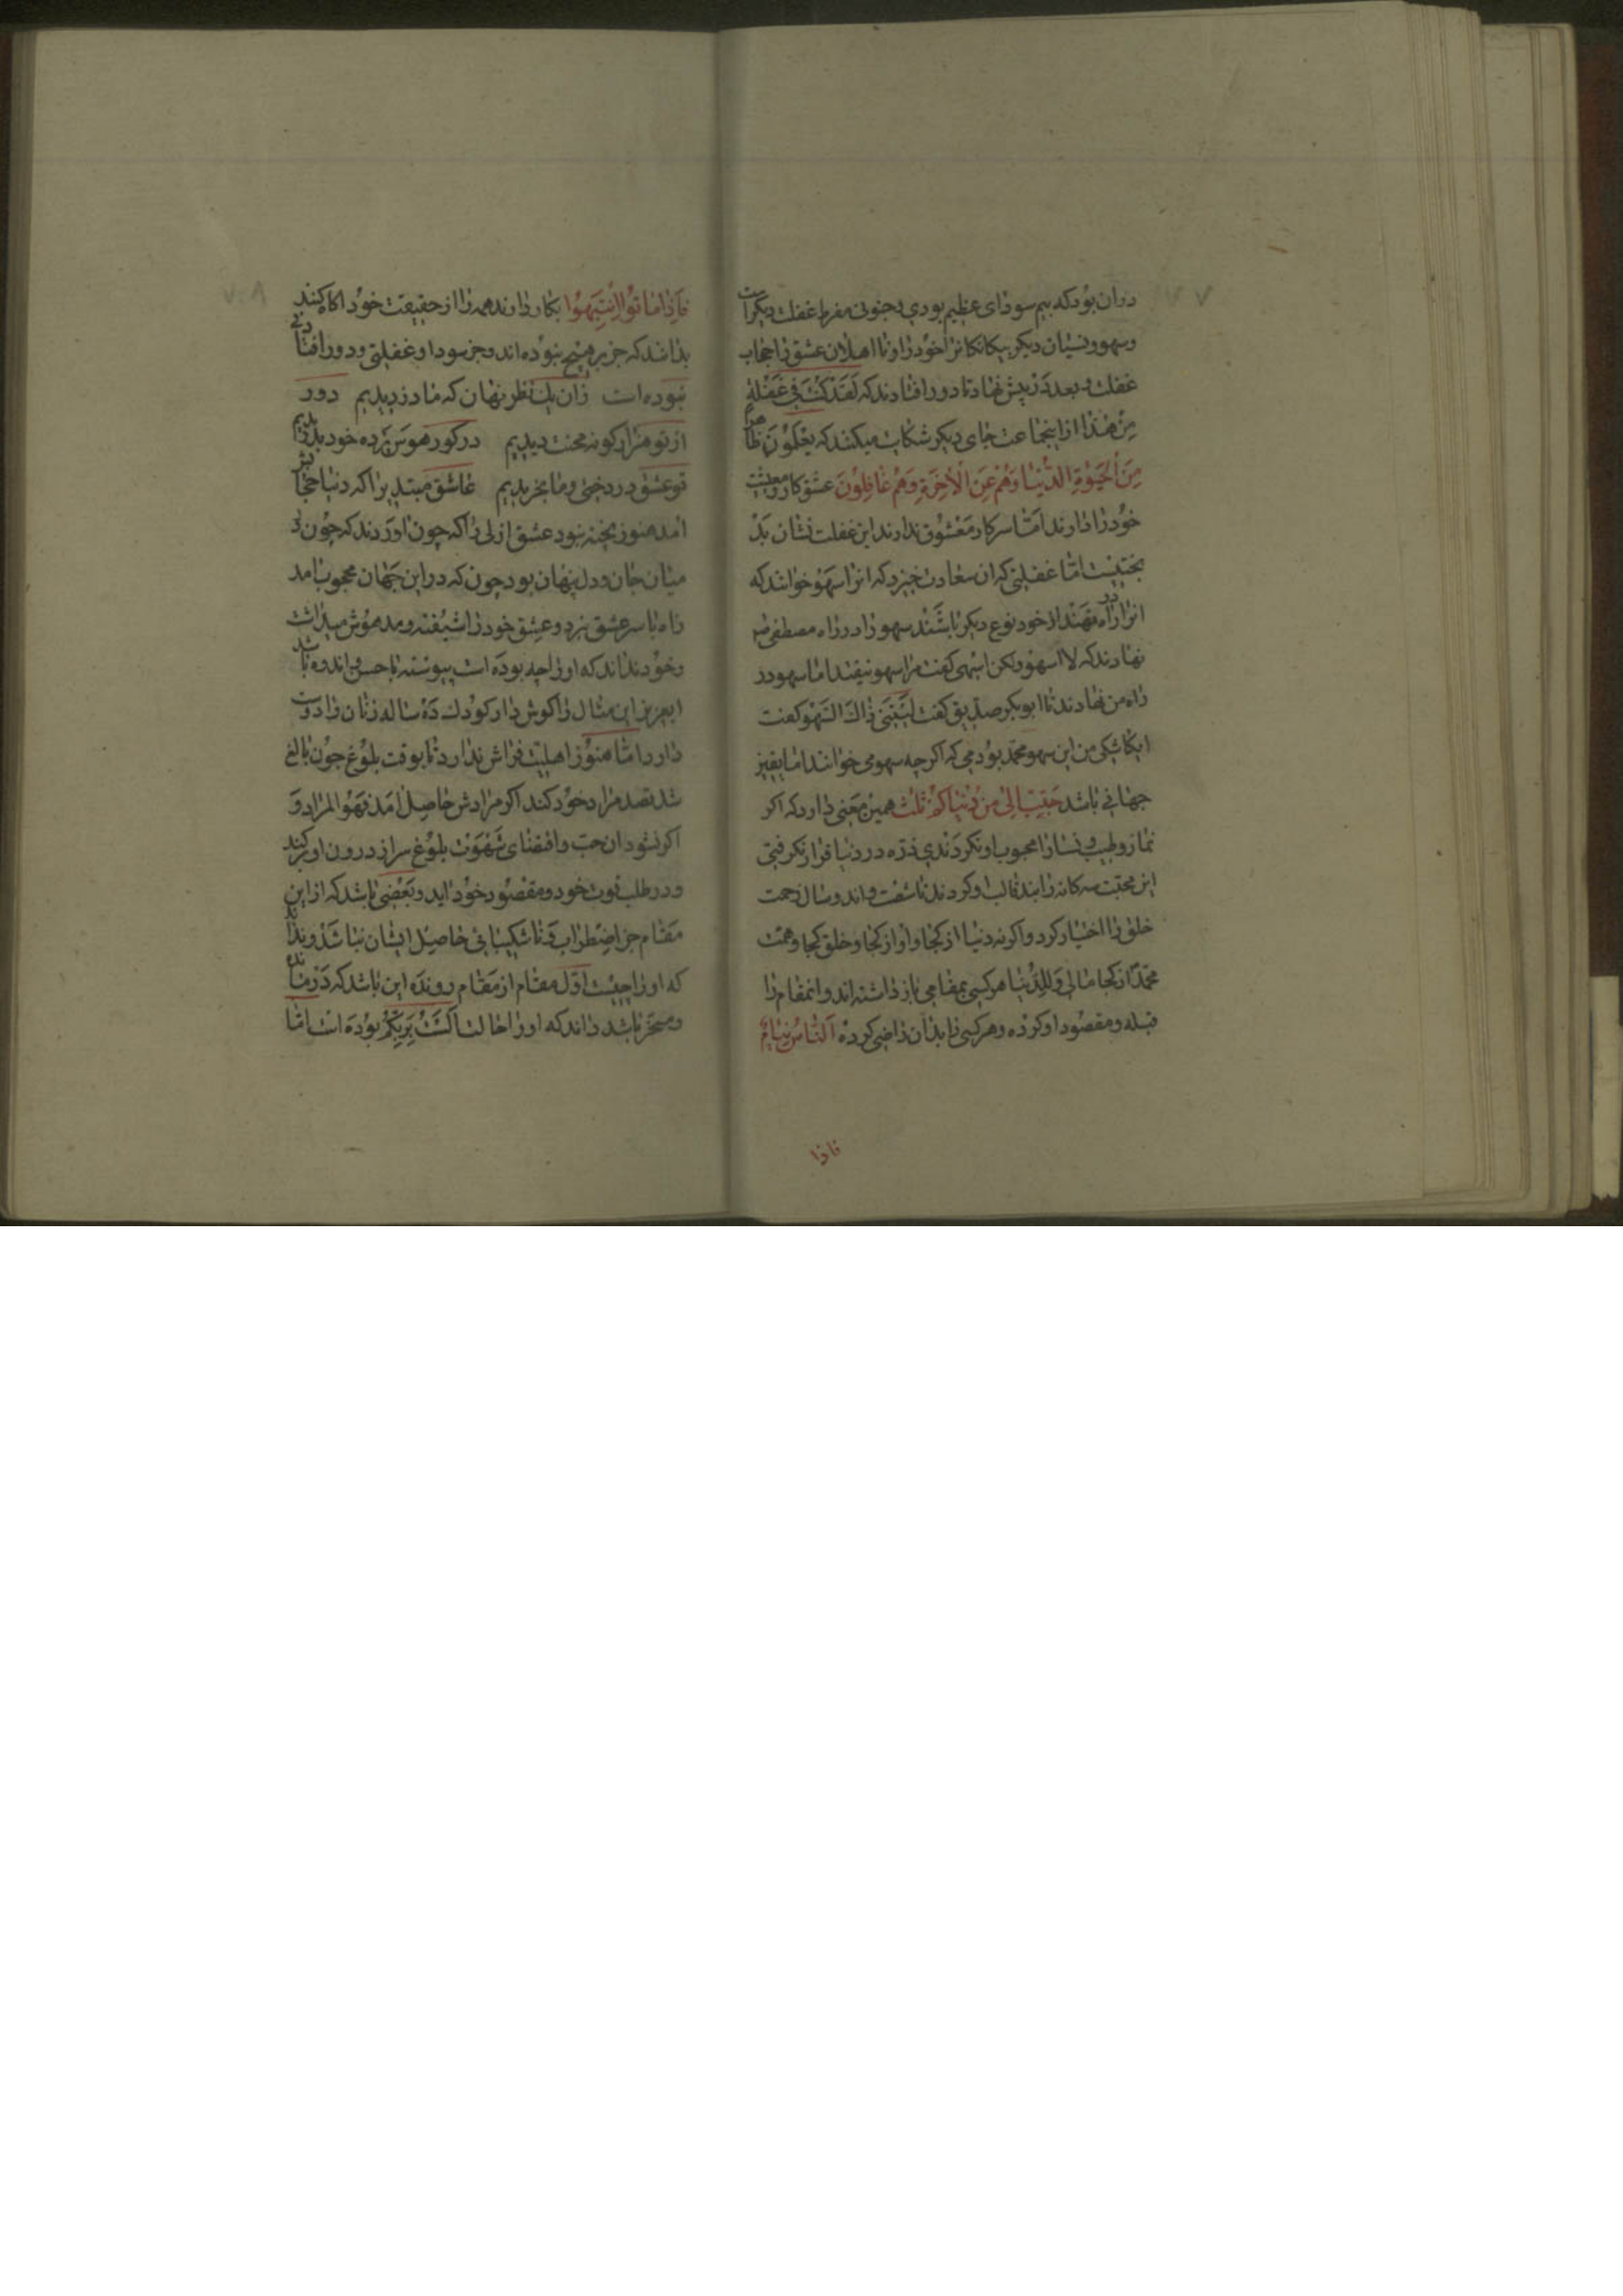 دران بود که بیم سودای عظیم بودی و جنونی مفرط غفلت دیکراست
وسهو ونسیان دیکر بیکانکانرا خود را ونا اهلان عشق را حجاب
غفلت و بعد در پیش نهاد تا دور افتادند که لَقَدْ کُنْتَ فِی غَفْلَةٍ
مِنْ هٰذَا از اینجماعت جای دیکر شکایت میکند که یَعْلَمُونَ ظَاهِرًا
مِنَ الْحَیٰوةِ الدُّنْیَا وَهُمْ عَنِ الْاٰخِرَةِ وَهُمْ غَافِلُونَ عشق کار و معیشت
خود را دارند امّا سرکار معشوق ندارند این غفلت نشان بد
بختیست امّا غفلتی که ان سعادت خیزد که انرا سهو خوانند که
انرا در راه نهند از خود نوع دیکر باشند سهو را در راه مصطفی
نهادند که لا اسهو ولکن اسهی کفت مرا سهو نیفتد اما سهو در
راه من نهادند تا ابوبکر صدیق کفت لَیْتَنِی ذٰاکَ السَّهْو کفت
ایکاشکی من این سهو محمد بودمی که اکرچه سهو می خوانند اما یقین
جهانی باشد حُبِّبَ اِلَیَّ مِنْ دُنْیَاکُمْ ثَلٰث همین معنی دارد که اکر
نماز وطیب و نسارا محبوب او نکردندی ذرّه در دنیا قرار نکرفتی
این محبّت سه کانه را بند قالب او کردند تا شصت واند وسال زحمت
خلق را اختیار کرد و اکر نه دنیا از کجا و او از کجا و خلق کجا و همّت
محمّد از کجا مَا لِی وَلِلدُّنْیَا هر کسی بمقامی باز داشته اند و انمقام را
قبله و مقصود او کرده و هر کسی را بدان راضی کرده اَلنّاسُ نِیَامٌ
فاذا
فَاِذَا مَاتُوا اِنْتَبَهُوا بکار دارند همه را از حقیقت خود اکاه کنند
بدانند که جز بر هیچ نبوده اند و جز سودا و غفلتی و دور افتادنی
نبوده است زان یک نظر نهان که ما دزدیدیم دور
از تو هزار کونه محنت دیدیم در کور هوس پرده خود بدریدیم
تو عشق فروختی و ما بخریدیم عاشق مبتدیرا که دنیا حجابش
امد هنوز پخته نبود عشق ازلی را که چون اوردند که چون در
میان جان و دل پنهان بود چون که در این جهان محجوب امد
راه با سر عشق نبرد و عشق خود را شیفته و مدهوش میداشت
و خود نداند که او را چه بوده است پیوسته با حسن و اندوه باشد
ایعزیز این مثال را کوش دار کودک ده ساله زنان را دوست
دارد اما هنوز اهلیت فراش ندارد تا بوقت بلوغ چون بالغ
شد قصد مراد خود کند اکر مرادش حاصل امد فهو المراد و
اکر نشود ان حب و اقتضای شهوت بلوغ سر از درون او برکند
و در طلب قوت خود و مقصود خود اید و بعضی باشد که از این
مقام جز اضطراب و نا شکیبائی حاصل ایشان نباشد و نداند
که او را چیست اوّل مقام از مقام رونده این باشد که درمانده
و متحیّر باشد داند که او را حالت اَلَسْتُ بِرَبِّکُمْ بوده است امّا